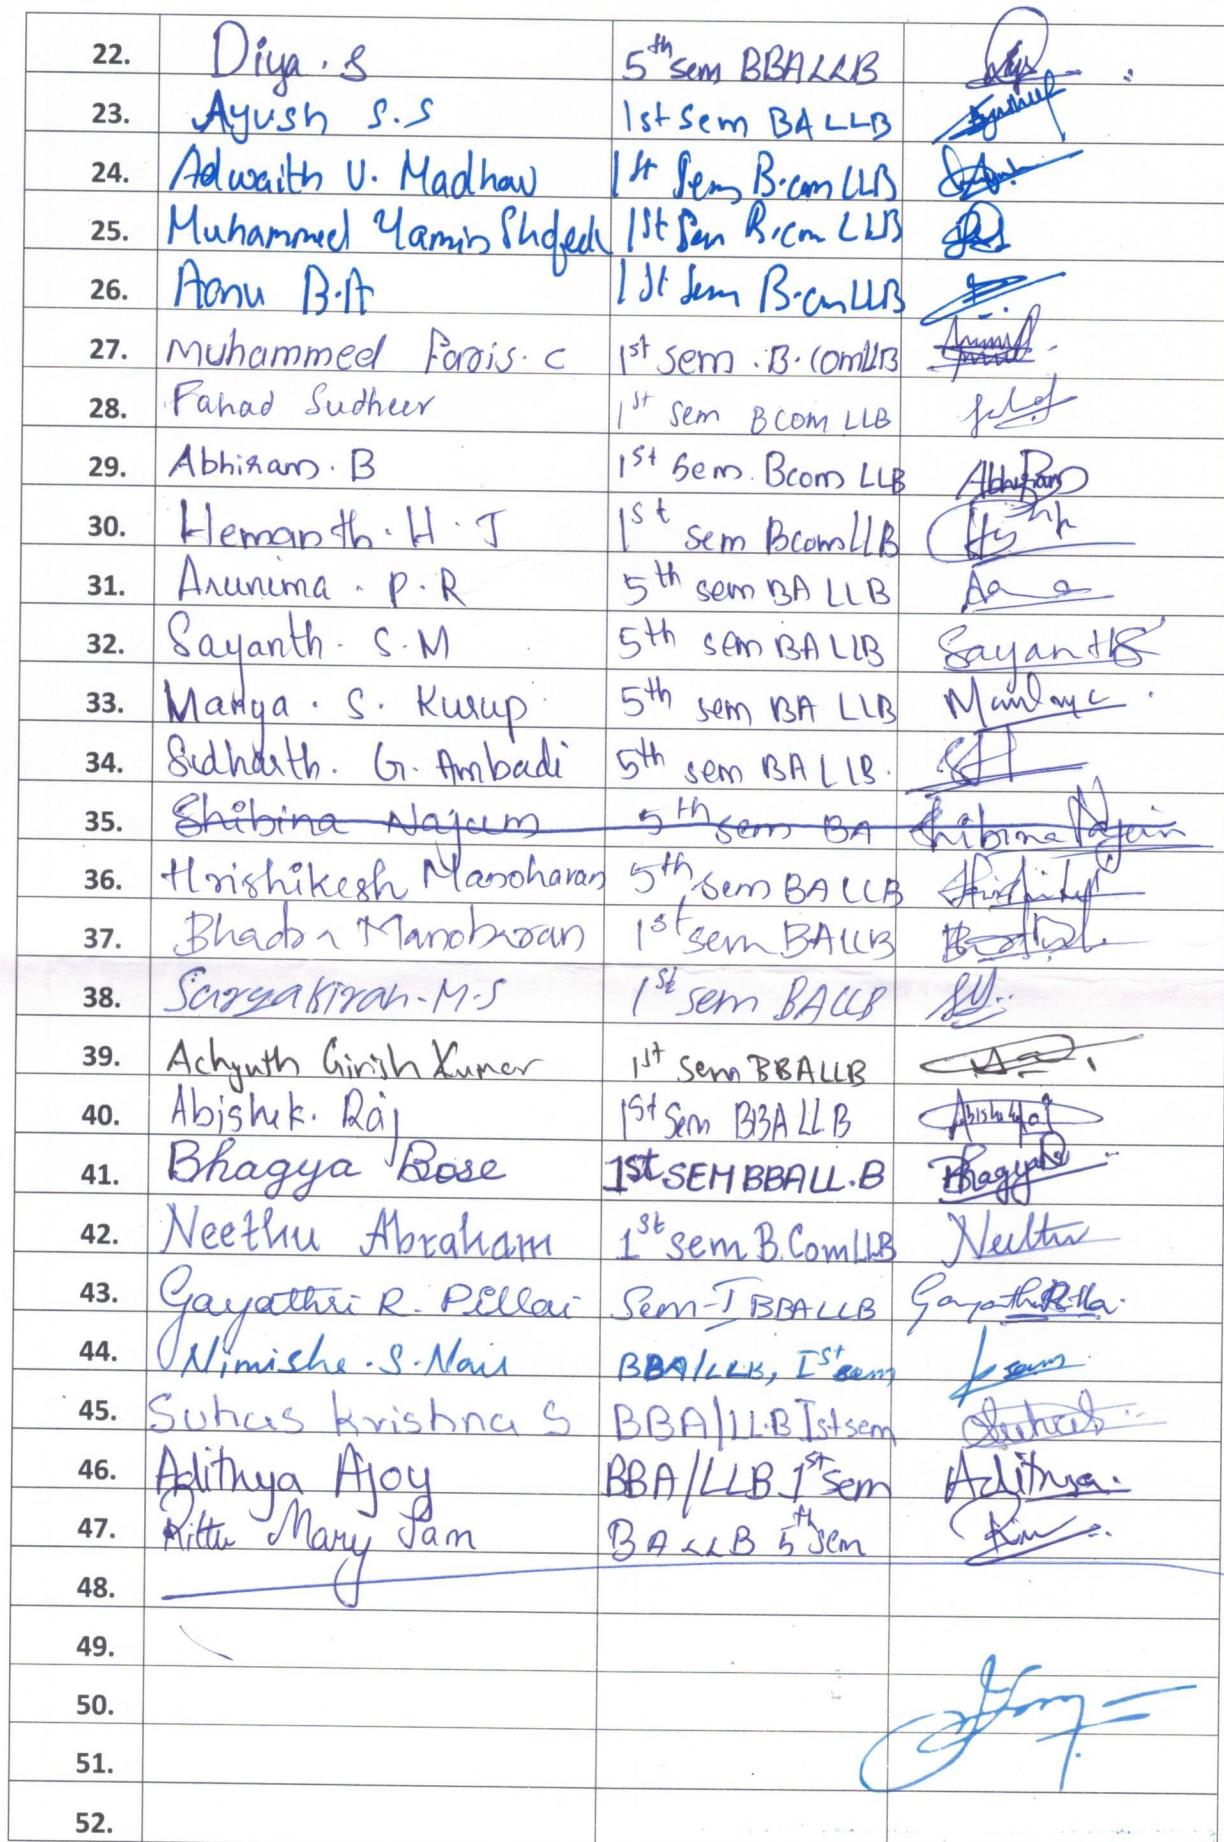 22. Diya . S 5th sem BBA LLB
23. Ayush S.S 1st Sem BA LLB
24. Adwaith U. Madhav 1st Sem B.com LLB
25. Muhammed Yamin Shafeek 1st Sem B.com LLB
26. Aonu B.A 1st Sem B.com LLB
27. Muhammed Faris. C 1st sem . B. Com LLB
28. Fahad Sudheer 1st sem B COM LLB
29. Abhiram. B 1st Sem. Bcom LLB Abhiram
30. Hemanth. H. J 1st sem Bcom LLB
31. Arunima . P. R 5th sem BA LLB
32. Sayanth. S. M 5th sem BA LLB Sayanth
33. Manya . S. Kurup 5th sem BA LLB
34. Sidharth. G. Ambadi 5th sem BA LLB.
35. Shibina Najum 5th sem BA Shibina Najum
36. Hrishikesh Manoharan 5th sem BA LLB
37. Bhadra Manoharan 1st sem BALLB
38. Suryakiran-M-S 1st sem BALLB
39. Achyuth Girish Kumar 1st sem BBALLB
40. Abishek. Raj 1st Sem BBA LLB Abishek Raj
41. Bhagya Bose 1st SEM BBALL.B Bhagya
42. Neethu Abraham 1st sem B.Com LLB Neethu
43. Gayathri R. Pillai Sem-I BBALLB
44. Nimisha . S. Nair BBA/LLB, Ist sem
45. Suhas Krishna S BBA/LL.B Ist sem Suhas
46. Adithya Ajoy BBA/LLB 1st sem Adithya.
47. Rittu Mary Sam BA LLB 5th sem
48.
49.
50.
51.
52.